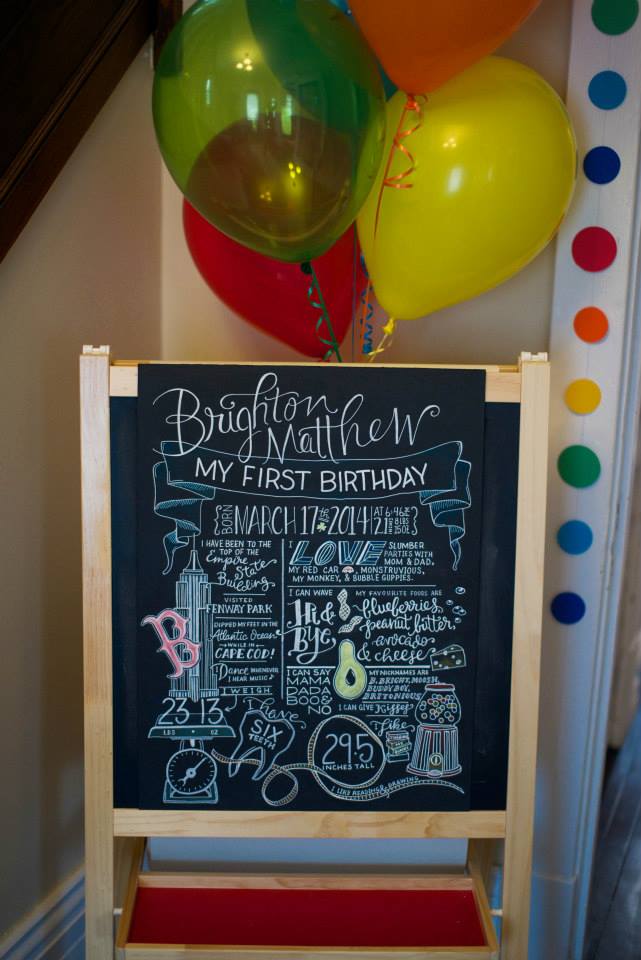 Brighton
Matthew
MY FIRST BIRTHDAY
BORN MARCH 17th 2014 AT 6:46
8 LBS
I HAVE BEEN TO THE
TOP OF THE
Empire
State
Building
VISITED
FENWAY PARK
DIPPED MY FEET IN THE
Atlantic Ocean
WHILE IN
CAPE COD!
I Dance WHENEVER
I HEAR MUSIC
I WEIGH
23 13
LBS OZ
B
I LOVE SLUMBER
PARTIES WITH
MOM & DAD,
MY RED CAR, MONSTRUVIOUS,
MY MONKEY, & BUBBLE GUPPIES.
I CAN WAVE
Hi &
Bye
MY FAVOURITE FOODS ARE
blueberries,
peanut butter
avocado
& cheese
I CAN SAY
MAMA
DADA
BOO &
NO
MY NICKNAMES ARE
B, BRIGHT, MOOSH,
BUDDY BOY,
BRITONIOUS
I CAN GIVE Kisses
I have
SIX
TEETH
29.5
INCHES TALL
I like
I LIKE READING & DRAWING